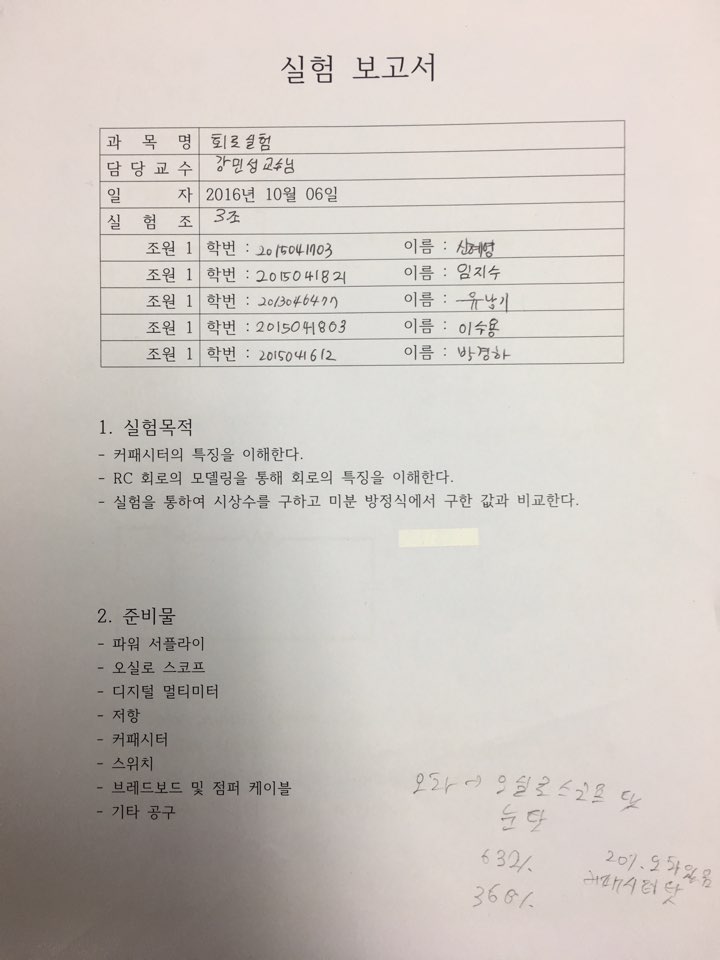 실험 보고서
과 목 명 회로실험
담당교수 강민성교수님
일 자 2016년 10월 06일
실 험 조 3조
조원 1 학번 : 2015041703 이름 : 신혜영
조원 1 학번 : 2015041821 이름 : 임지수
조원 1 학번 : 2013046477 이름 : 유남기
조원 1 학번 : 2015041803 이름 : 이수용
조원 1 학번 : 2015041612 이름 : 박경하
1. 실험목적
- 커패시터의 특징을 이해한다.
- RC 회로의 모델링을 통해 회로의 특징을 이해한다.
- 실험을 통하여 시상수를 구하고 미분 방정식에서 구한 값과 비교한다.
2. 준비물
- 파워 서플라이
- 오실로 스코프
- 디지털 멀티미터
- 저항
- 커패시터
- 스위치
- 브레드보드 및 점퍼 케이블
- 기타 공구
오차 → 오실로스코프 탓
눈탓
632%
368%
20%.오차있음
커패시터 탓